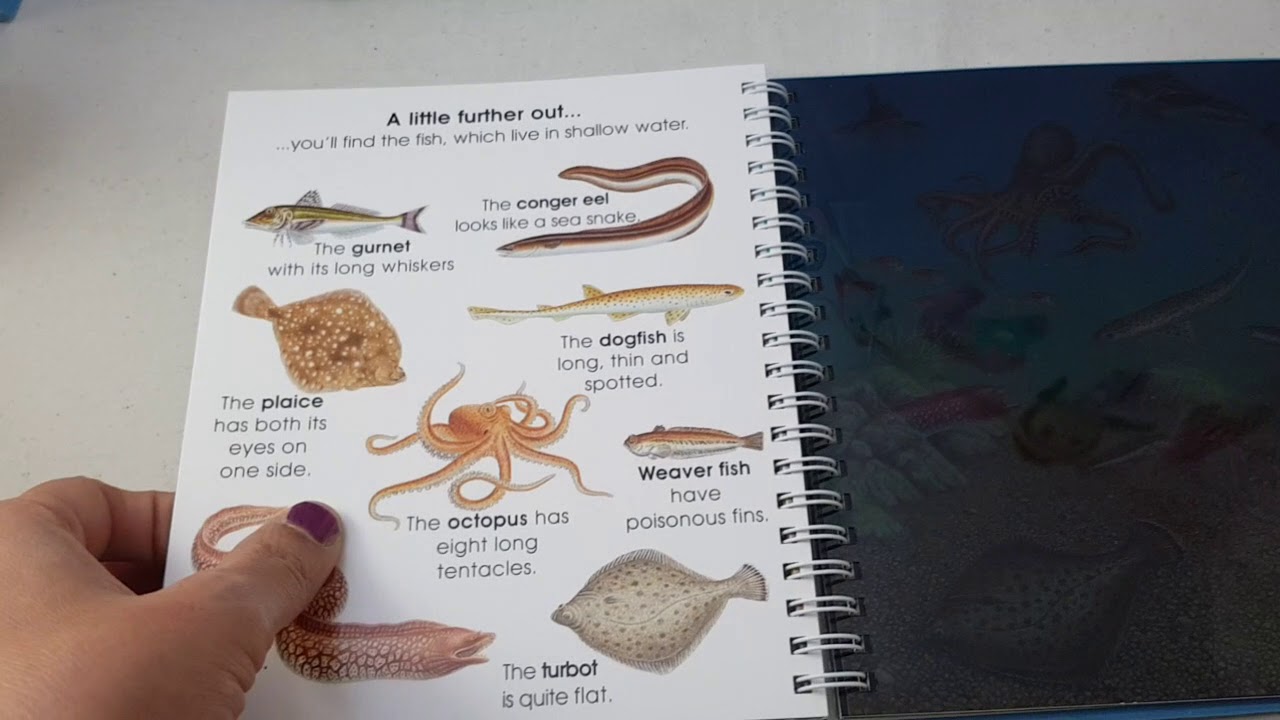 A little further out...
...you'll find the fish, which live in shallow water.
The conger eel
looks like a sea snake.
The gurnet
with its long whiskers
The dogfish is
long, thin and
spotted.
The plaice
has both its
eyes on
one side.
Weaver fish
have
poisonous fins.
The octopus has
eight long
tentacles.
The turbot
is quite flat.